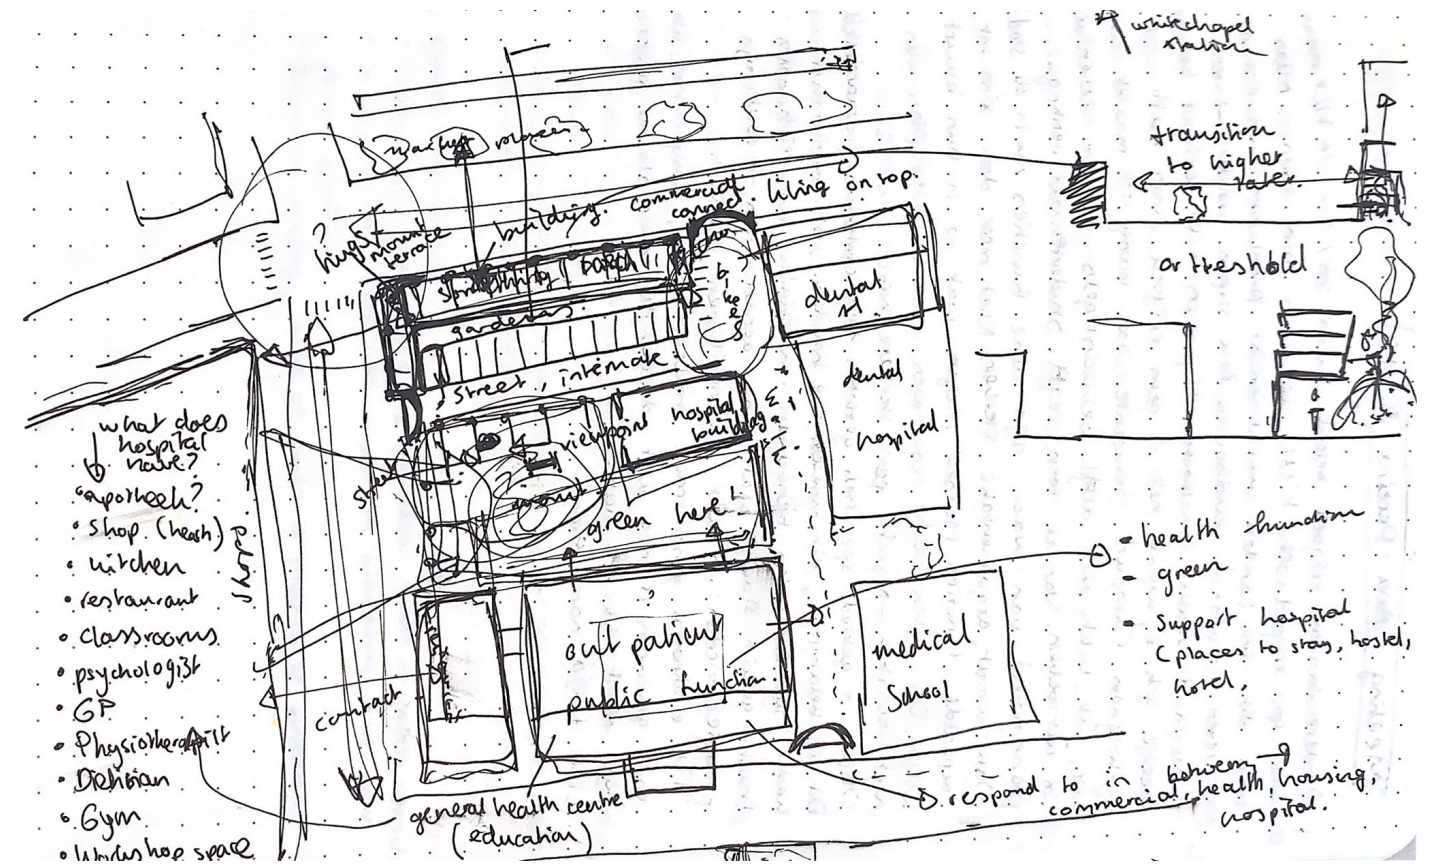 whitechapel
station
transition
to higher
later.
or treshold
market places
?
kings
mount
terrace
building.
commercial
connect.
living on top.
gardens
bikes
street, intimate
dental
dental
hospital
viewpoint
hospital
building
street
mount
green here!
what does
hospital
have?
apotheek?
• shop (heath)
• kitchen
• restaurant
• classrooms
• psychologist
• GP
• Physiotherapist
• Dietitian
• Gym
• Workshop space
shops
contact
?
out patient
public function
medical
school
general health centre
(education)
• health function
• green
• support hospital
(places to stay, hostel,
hotel,
respond to in between
commercial, health, housing,
hospital.